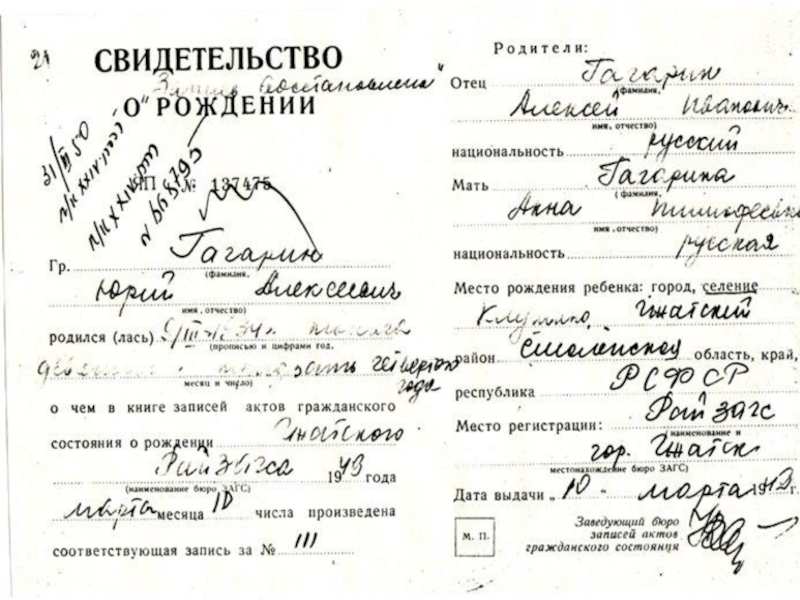 21
СВИДЕТЕЛЬСТВО
Запись восстановлена
О РОЖДЕНИИ
31/III 50
№ 137475
Гр. Гагарин
(фамилия,
Юрий Алексеевич
имя, отчество)
родился (лась) 9/III-1934г.
(прописью и цифрами год,
четвертого
года
месяц и число)
о чем в книге записей актов гражданского
состояния о рождении Гжатского
РайЗагса 1943 года
(наименование бюро ЗАГС)
марта месяца 10 числа произведена
соответствующая запись за № III
Родители:
Отец Гагарин
(фамилия,
Алексей Иванович
имя, отчество)
национальность русский
Мать Гагарина
(фамилия,
Анна Тимофеевна
имя, отчество)
национальность русская
Место рождения ребенка: город, селение
Клушино, Гжатский
район Смоленской область, край,
республика РСФСР
Место регистрации: Райзагс
(наименование и
гор. Гжатск
местонахождение бюро ЗАГС)
Дата выдачи „10" марта 19 г.
М. П.
Заведующий бюро
записей актов
гражданского состояния